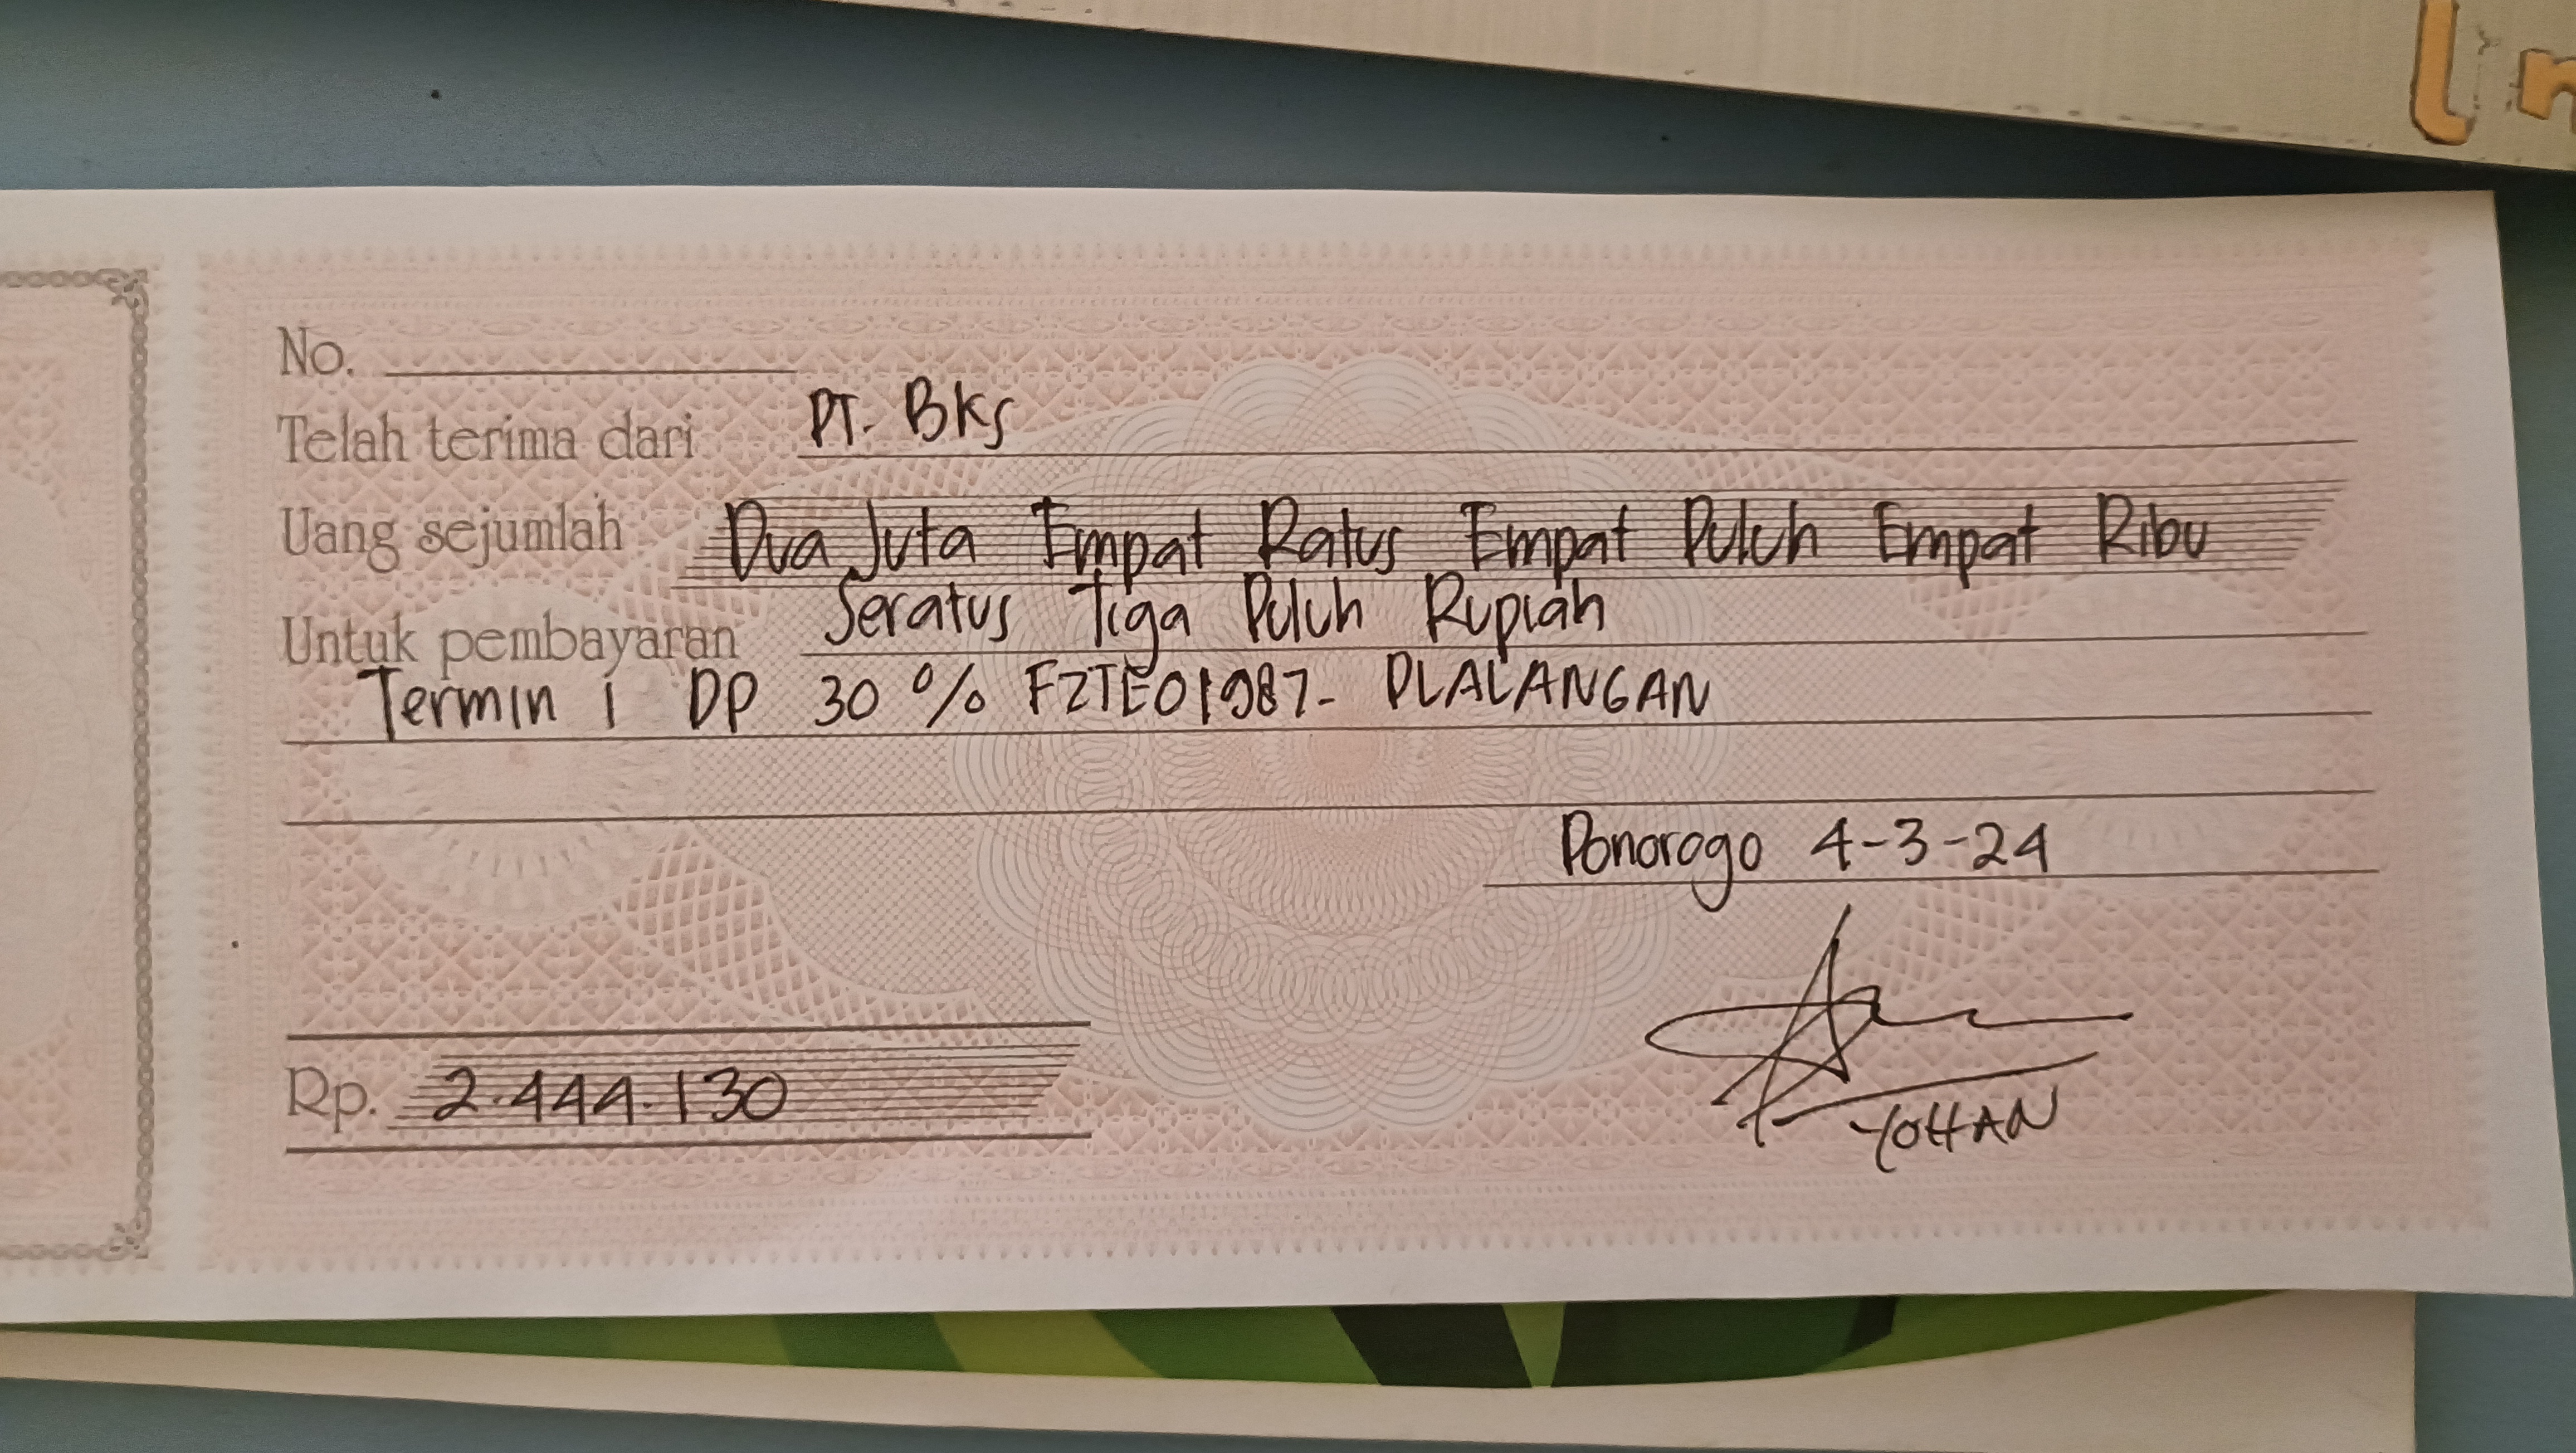 ln
No.
Telah terima dari PT. BKS
Uang sejumlah Dua Juta Empat Ratus Empat Puluh Empat Ribu
Seratus Tiga Puluh Rupiah
Untuk pembayaran
Termin 1 DP 30 % FZTE01987- PLALANGAN
Ponorogo 4-3-24
Rp. 2.444.130
YOHAN